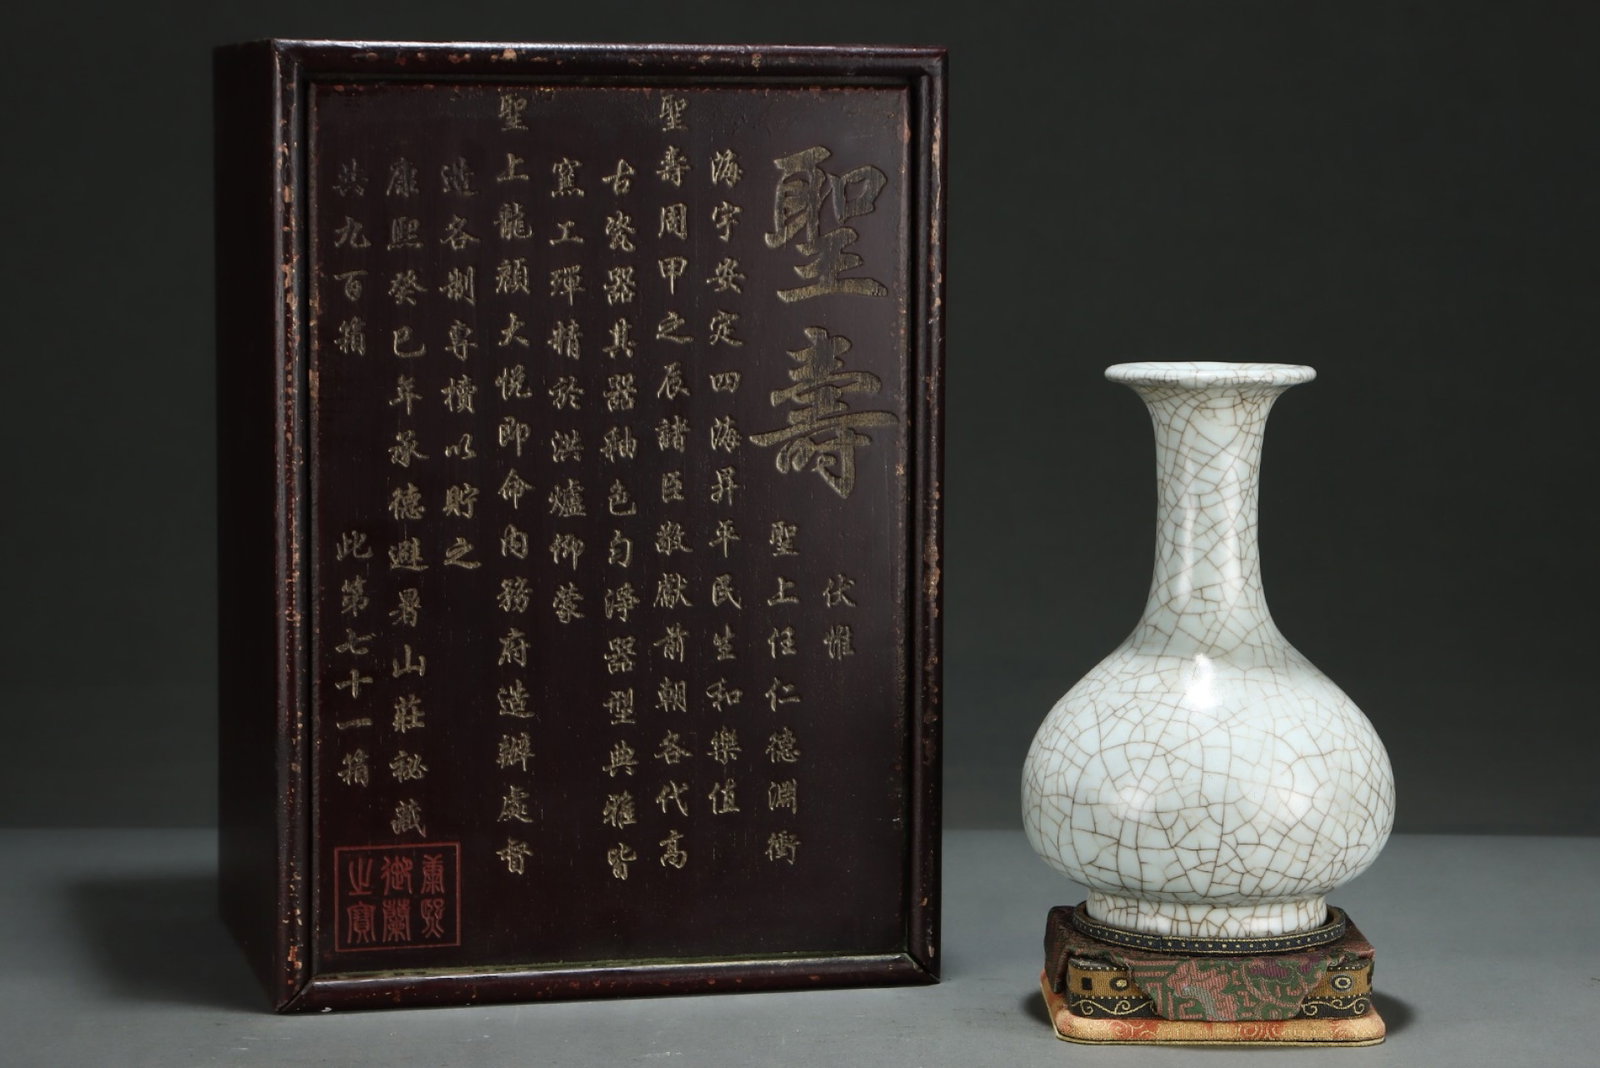 聖壽
伏惟
聖上任仁德淵衝
海宇安定四海昇平民生和樂值
聖壽周甲之辰諸臣敬獻前朝各代高
古瓷器其器釉色勻淨器型典雅皆
窯工殫精於洪爐仰蒙
聖上龍顏大悅即命內務府造辦處督
造各制專櫝以貯之
康熙癸巳年承德避暑山莊秘藏
共九百箱 此第七十一箱
康熙
御蘭
之寶